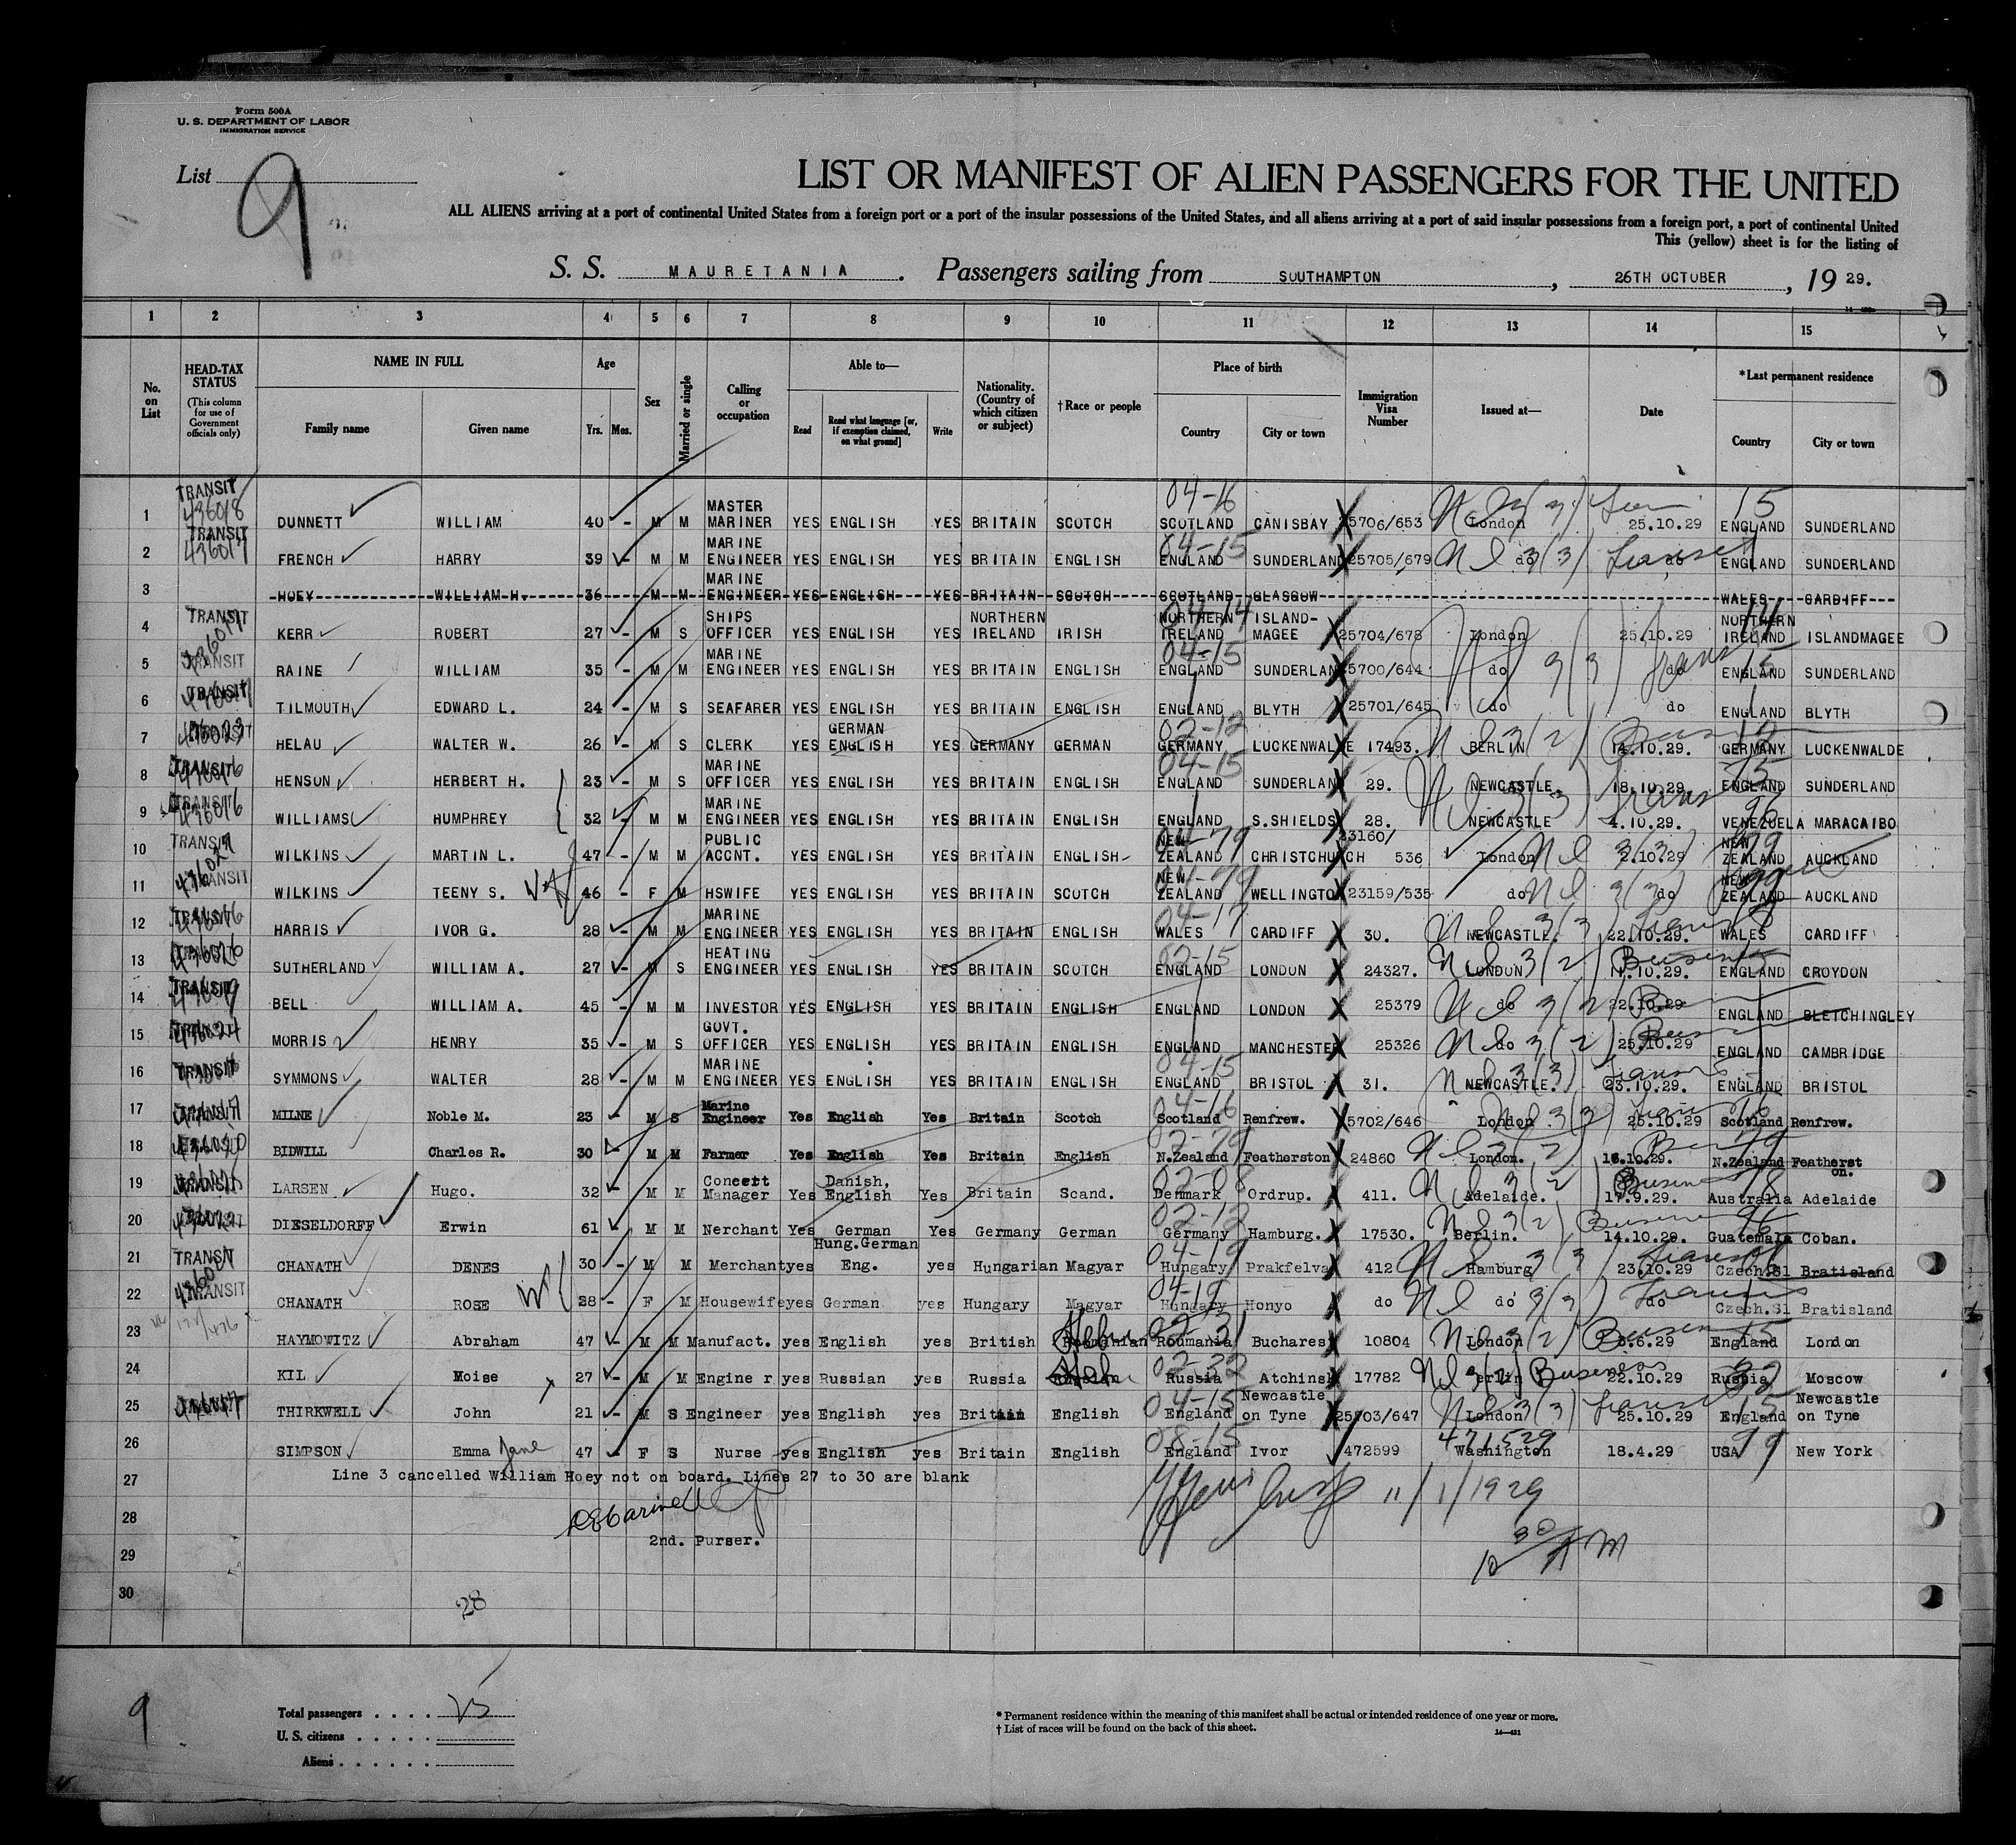 Form 500A
U. S. DEPARTMENT OF LABOR
IMMIGRATION SERVICE
List 9
LIST OR MANIFEST OF ALIEN PASSENGERS FOR THE UNITED
ALL ALIENS arriving at a port of continental United States from a foreign port or a port of the insular possessions of the United States, and all aliens arriving at a port of said insular possessions from a foreign port, a port of continental United
This (yellow) sheet is for the listing of
S. S. MAURETANIA. Passengers sailing from SOUTHAMPTON, 26TH OCTOBER, 19 29.
1 2 3 4 5 6 7 8 9 10 11 12 13 14 15
No. on List
HEAD-TAX STATUS (This column for use of Government officials only)
NAME IN FULL Family name Given name
Age Yrs. Mos.
Sex
Married or single
Calling or occupation
Able to— Read Read what language [or, if exemption claimed, on what ground] Write
Nationality. (Country of which citizen or subject)
†Race or people
Place of birth Country City or town
Immigration Visa Number
Issued at—
Date
*Last permanent residence Country City or town
1 TRANSIT 436018 DUNNETT WILLIAM 40 - M M MASTER MARINER YES ENGLISH YES BRITAIN SCOTCH 04-16 SCOTLAND CANISBAY 5706/653 London 25.10.29 15 ENGLAND SUNDERLAND
2 TRANSIT 436017 FRENCH HARRY 39 - M M MARINE ENGINEER YES ENGLISH YES BRITAIN ENGLISH 04-15 ENGLAND SUNDERLAND 25705/679 do do ENGLAND SUNDERLAND
3 HOEY WILLIAM H. 36 M M MARINE ENGINEER YES ENGLISH YES BRITAIN SCOTCH SCOTLAND GLASGOW WALES CARDIFF
4 TRANSIT KERR ROBERT 27 - M S SHIPS OFFICER YES ENGLISH YES NORTHERN IRELAND IRISH 04-14 NORTHERN IRELAND ISLAND-MAGEE 25704/678 London 25.10.29 14 NORTHERN IRELAND ISLANDMAGEE
5 TRANSIT RAINE WILLIAM 35 - M M MARINE ENGINEER YES ENGLISH YES BRITAIN ENGLISH 04-15 ENGLAND SUNDERLAN 5700/644 do do 15 ENGLAND SUNDERLAND
6 TRANSIT TILMOUTH EDWARD L. 24 - M S SEAFARER YES ENGLISH YES BRITAIN ENGLISH ENGLAND BLYTH 25701/645 do do ENGLAND BLYTH
7 HELAU WALTER W. 26 - M S CLERK YES GERMAN ENGLISH YES GERMANY GERMAN 02-12 GERMANY LUCKENWALDE 17493. BERLIN 14.10.29. 12 GERMANY LUCKENWALDE
8 TRANSIT HENSON HERBERT H. 23 - M S MARINE OFFICER YES ENGLISH YES BRITAIN ENGLISH 04-15 ENGLAND SUNDERLAN 29. NEWCASTLE. 18.10.29. 15 ENGLAND SUNDERLAND
9 TRANSIT 436016 WILLIAMS HUMPHREY 32 - M M MARINE ENGINEER YES ENGLISH YES BRITAIN ENGLISH ENGLAND S.SHIELDS 28. NEWCASTLE 4.10.29. 96 VENEZUELA MARACAIBO
10 TRANSIT WILKINS MARTIN L. 47 - M M PUBLIC ACCNT. YES ENGLISH YES BRITAIN ENGLISH 04-79 NEW ZEALAND CHRISTCHURCH 23160/ 536 London 2.10.29 79 NEW ZEALAND AUCKLAND
11 TRANSIT WILKINS TEENY S. 46 - F M HSWIFE YES ENGLISH YES BRITAIN SCOTCH 04-79 NEW ZEALAND WELLINGTON 23159/535 do do 79 NEW ZEALAND AUCKLAND
12 TRANSIT HARRIS IVOR G. 28 - M M MARINE ENGINEER YES ENGLISH YES BRITAIN ENGLISH 04-17 WALES CARDIFF 30. NEWCASTLE. 22.10.29. WALES CARDIFF
13 SUTHERLAND WILLIAM A. 27 - M S HEATING ENGINEER YES ENGLISH YES BRITAIN SCOTCH 02-15 ENGLAND LONDON 24327. LONDON 11.10.29. ENGLAND CROYDON
14 TRANSIT BELL WILLIAM A. 45 - M M INVESTOR YES ENGLISH YES BRITAIN ENGLISH ENGLAND LONDON 25379 do 22.10.29 ENGLAND BLETCHINGLEY
15 MORRIS HENRY 35 - M S GOVT. OFFICER YES ENGLISH YES BRITAIN ENGLISH ENGLAND MANCHESTER 25326 do 25.10.29 ENGLAND CAMBRIDGE
16 TRANSIT SYMMONS WALTER 28 - M M MARINE ENGINEER YES ENGLISH YES BRITAIN ENGLISH 04-15 ENGLAND BRISTOL 31. NEWCASTLE. 23.10.29. ENGLAND BRISTOL
17 MILNE Noble M. 23 - M S Marine Engineer Yes English Yes Britain Scotch 04-16 Scotland Renfrew. 5702/646 London 25.10.29 16 Scotland Renfrew.
18 BIDWILL Charles R. 30 - M M Farmer Yes English Yes Britain English 02-79 N.Zealand Featherston 24860 London. 16.10.29. 79 N.Zealand Featherston.
19 LARSEN Hugo. 32 - M M Concert Manager Yes Danish, English Yes Britain Scand. 02-08 Denmark Ordrup. 411. Adelaide. 17.9.29. 78 Australia Adelaide
20 DIESELDORFF Erwin 61 M M Nerchant Yes German Yes Germany German 02-12 Germany Hamburg. 17530. Berlin. 14.10.29. 96 Guatemala Coban.
21 TRANSIT CHANATH DENES 30 - M M Merchant yes Hung.German Eng. yes Hungarian Magyar 04-19 Hungary Prakfelva 412 Hamburg 23.10.29 Czech.Sl Bratisland
22 TRANSIT CHANATH ROSE 28 - F M Housewife yes German yes Hungary Magyar 04-19 Hungary Honyo do do do Czech.Sl Bratisland
23 HAYMOWITZ Abraham 47 - M M Manufact. yes English yes British Roumanian 02-31 Roumania Buchares 10804 London 3.6.29 15 England London
24 KIL Moise 27 - M M Engine r yes Russian yes Russia Russian 02-32 Russia Atchinsk 17782 erlin Business 22.10.29 32 Russia Moscow
25 THIRKWELL John 21 - M S Engineer yes English yes Britain English 04-15 England Newcastle on Tyne 25703/647 London 25.10.29 15 England Newcastle on Tyne
26 SIMPSON Emma Jane 47 - F S Nurse yes English yes Britain English 08-15 England Ivor 472599 471529 Washington 18.4.29 USA 99 New York
27 Line 3 cancelled William Hoey not on board. Lines 27 to 30 are blank
11/1/1929
28
2nd. Purser.
10 30 AM
29
30
28
9
Total passengers . . . . 25
U. S. citizens . . . . .
Aliens . . . . . .
* Permanent residence within the meaning of this manifest shall be actual or intended residence of one year or more.
† List of races will be found on the back of this sheet.
14—421